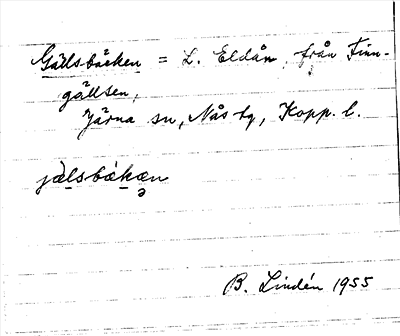 Gällsbäcken = L. Eldån, från Finn-
gällsen,
Järna sn, Nås tg, Kopp. l.
jälsbäkæn
B. Lindén 1955